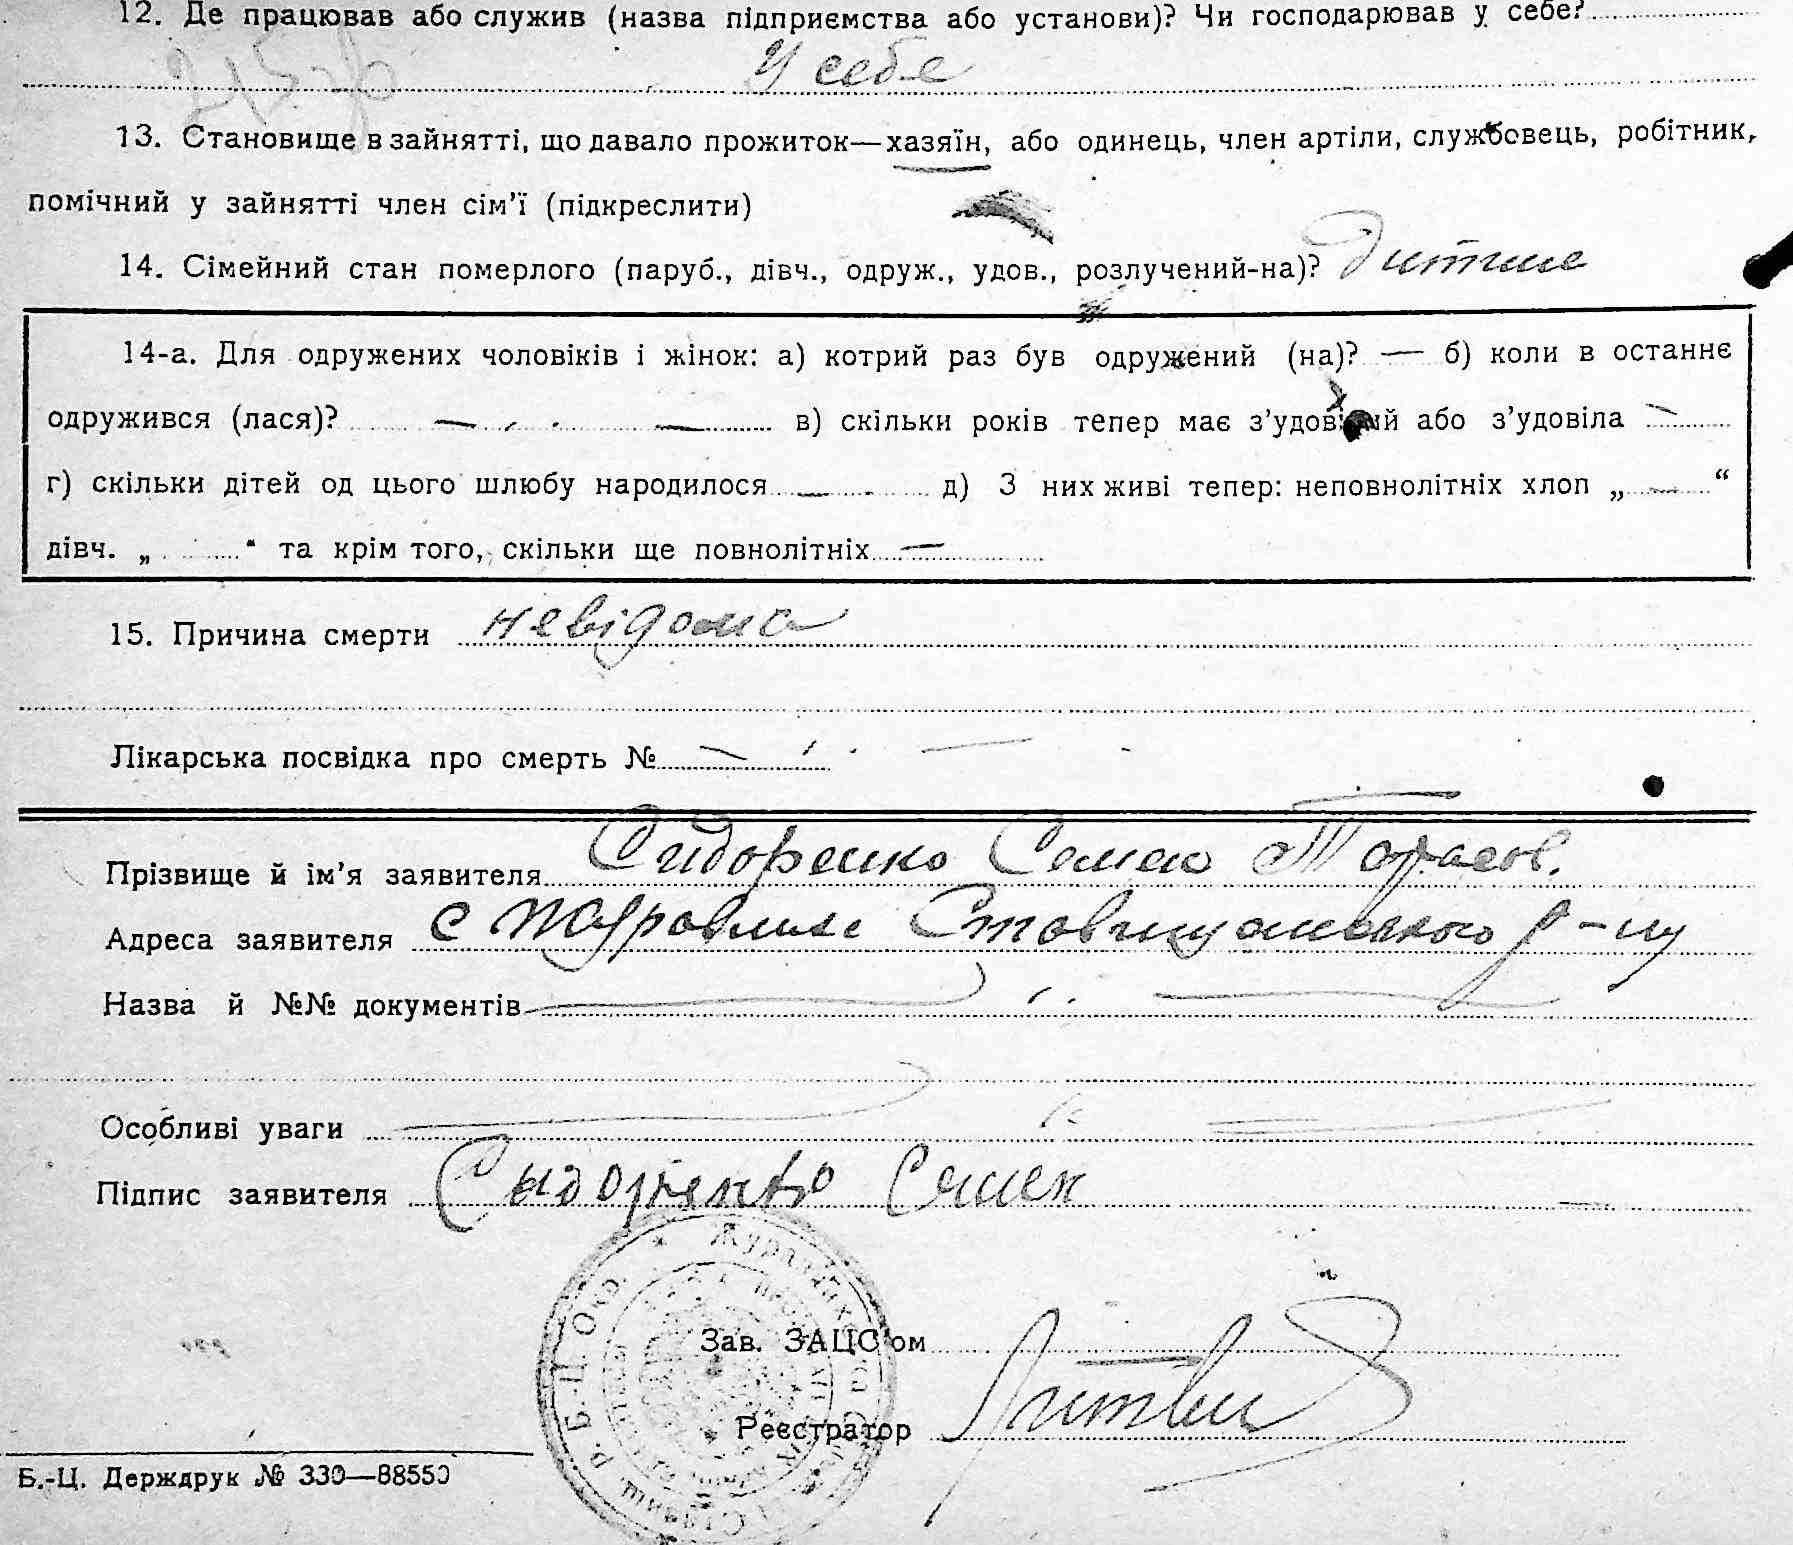 12. Де працював або служив (назва підприємства або установи)? Чи господарював у себе?
У себе
13. Становище в зайнятті, що давало прожиток—хазяїн, або одинець, член артіли, службовець, робітник,
помічний у зайнятті член сім'ї (підкреслити)
14. Сімейний стан померлого (паруб., дівч., одруж., удов., розлучений-на)? Дитина
14-а. Для одружених чоловіків і жінок: а) котрий раз був одружений (на)? — б) коли в останнє
одружився (лася)? — — в) скільки років тепер має з'удовілий або з'удовіла —
г) скільки дітей од цього шлюбу народилося — д) З них живі тепер: неповнолітніх хлоп „ — “
дівч. „ “ та крім того, скільки ще повнолітніх —
15. Причина смерти невідома
Лікарська посвідка про смерть № —
Прізвище й ім'я заявителя Сидоренко Семен Тарасов.
Адреса заявителя с Журавлиха Ставищанського р-ну
Назва й №№ документів
Особливі уваги
Підпис заявителя Сидоренко Семен
Зав. ЗАЦС'ом
Реєстратор
Б.-Ц. Держдрук № 330—88550